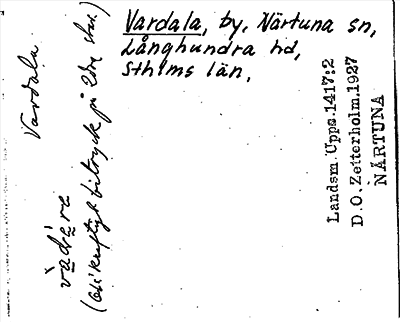 Vardala, by, Närtuna sn,
Långhundra hd,
Sthlms län.
Vardala
vàdérα
(obs! kraftigt bitryck på 2dra stav.)
Landsm. Upps. 1417:2
D.O. Zetterholm. 1927
NÄRTUNA